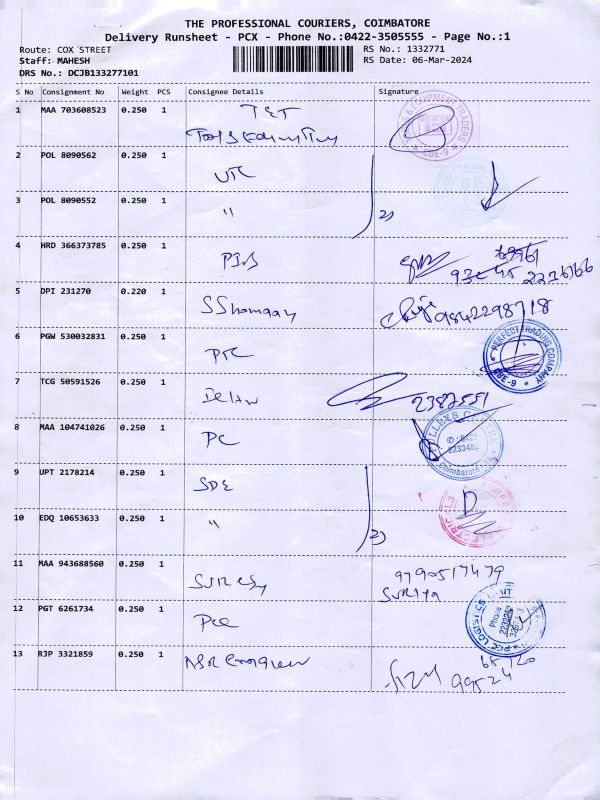 THE PROFESSIONAL COURIERS, COIMBATORE
Delivery Runsheet - PCX - Phone No.:0422-3505555 - Page No.:1
Route: COX STREET
RS No.: 1332771
Staff: MAHESH
RS Date: 06-Mar-2024
DRS No.: DCJB133277101
S No Consignment No Weight PCS Consignee Details Signature
1 MAA 703608523 0.250 1 T&T
Tools
2 POL 8090562 0.250 1 UTC
3 POL 8090552 0.250 1 "
2)
4 HRD 366373785 0.250 1
2236166
5 DPI 231270 0.220 1 9842298718
6 PGW 530032831 0.250 1 PTC
PERFECT TRADING COMPANY
CBE-9
7 TCG 50591526 0.250 1 2387551
8 MAA 104741026 0.250 1 PC
0422
2233482
Coimbatore
9 UPT 2178214 0.250 1 SDE
10 EDQ 10653633 0.250 1 "
2)
11 MAA 943688560 0.250 1 Suresh 9790517479
Suriya
12 PGT 6261734 0.250 1 PCC
PCC LOGISTICS
Phone
13 RJP 3321859 0.250 1
99524